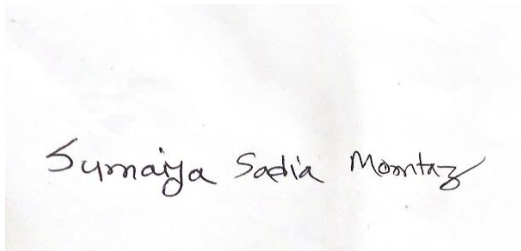 Sumaiya Sadia Momtaz